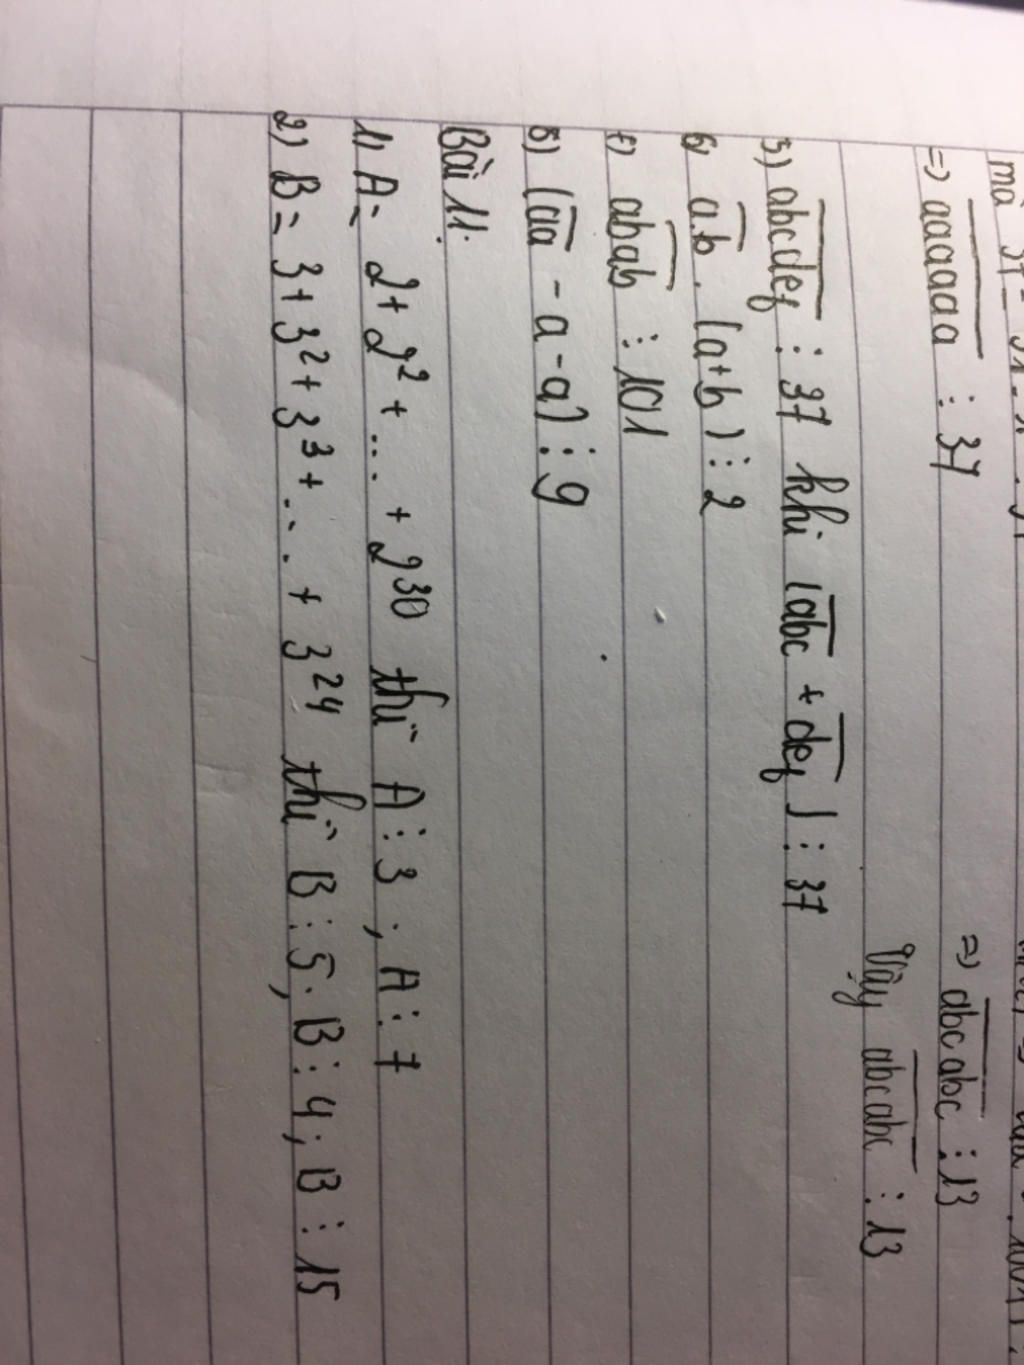 mà 37 =
=) aaaaaa ⋮ 37
=) abcabc ⋮ 13
Vậy abcabc ⋮ 13
5) abcdef ⋮ 37 khi (abc + def) ⋮ 37
6) a.b . (a+b) ⋮ 2
7) abab ⋮ 101
8) (aa - a - a) ⋮ 9
Bài 11:
1) A = 2 + 2² + ... + 2³⁰ thì A ⋮ 3 , A ⋮ 7
2) B = 3 + 3² + 3³ + ... + 3²⁴ thì B ⋮ 5, B ⋮ 4; B ⋮ 15